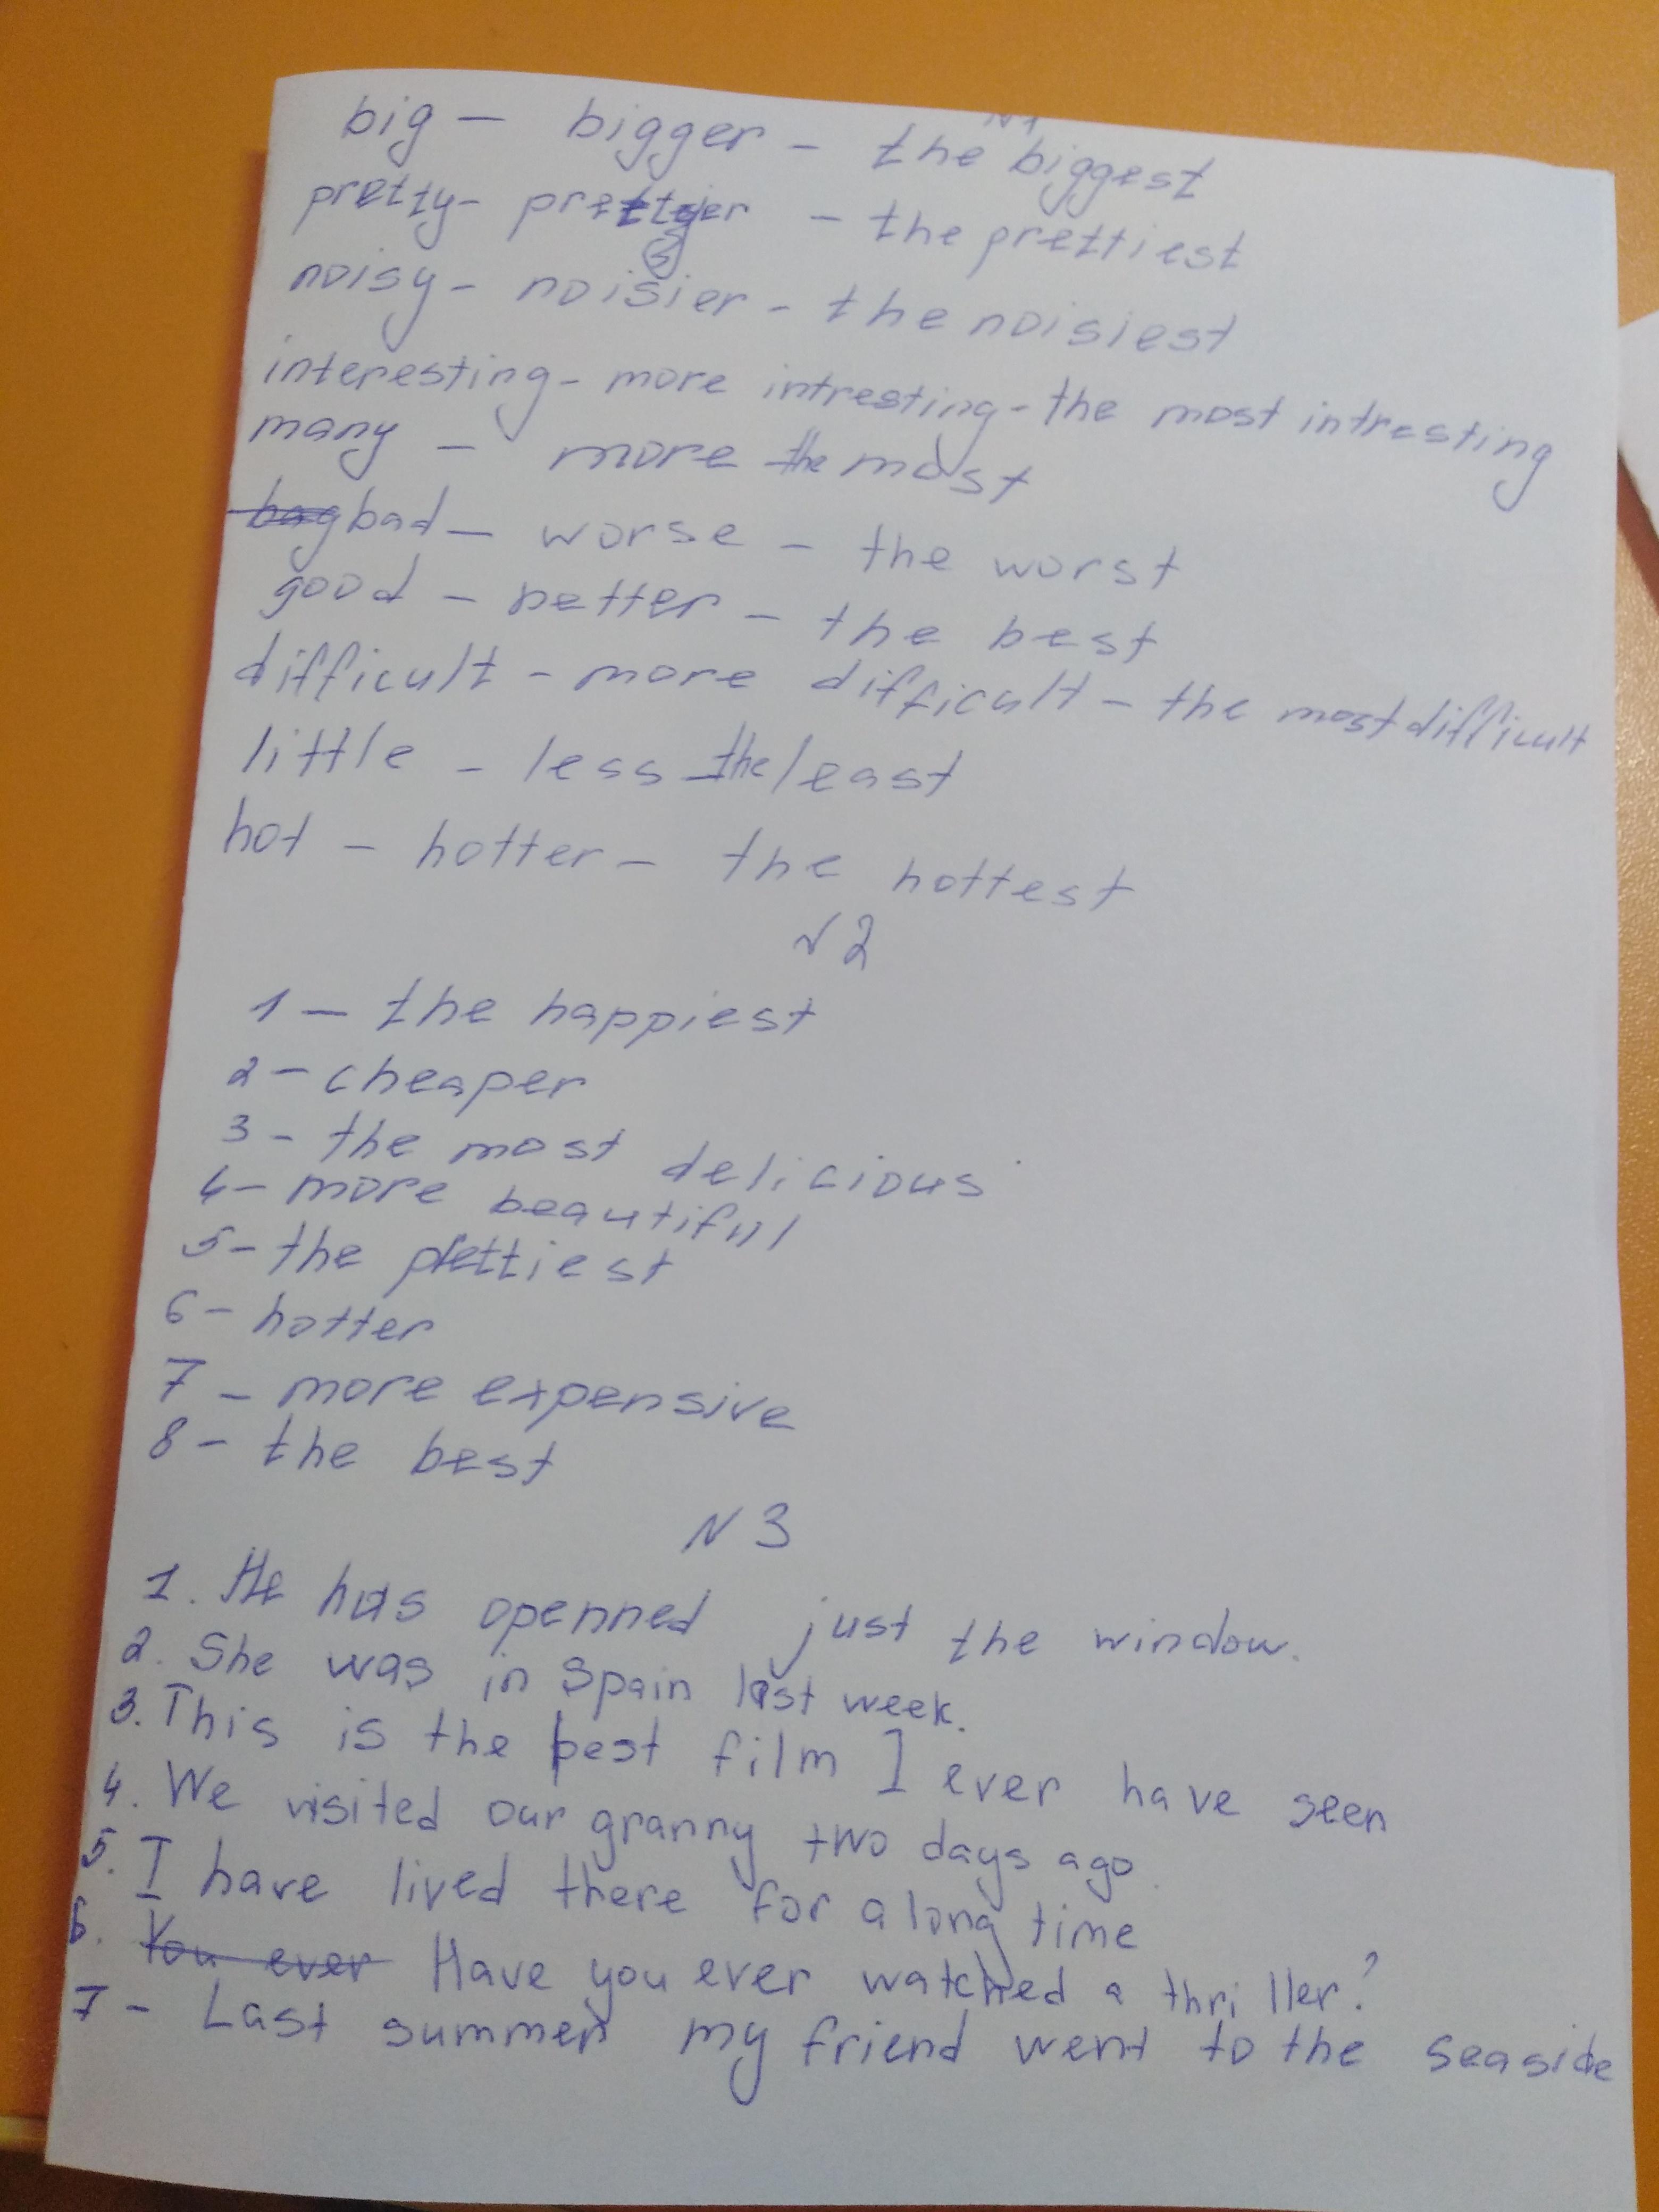 N1
big - bigger - the biggest
pretty - prettyer - the prettiest
noisy - noisier - the noisiest
interesting - more intresting - the most intresting
many - more the most
bag bad - worse - the worst
good - better - the best
difficult - more difficult - the most difficult
little - less the least
hot - hotter - the hottest
N2
1 - the happiest
2 - cheaper
3 - the most delicious
4 - more beautiful
5 - the prettiest
6 - hotter
7 - more expensive
8 - the best
N3
1. He has openned just the window.
2. She was in Spain last week.
3. This is the best film I ever have seen
4. We visited our granny two days ago.
5. I have lived there for a long time
6. You ever Have you ever watched a thriller?
7 - Last summer my friend went to the seaside